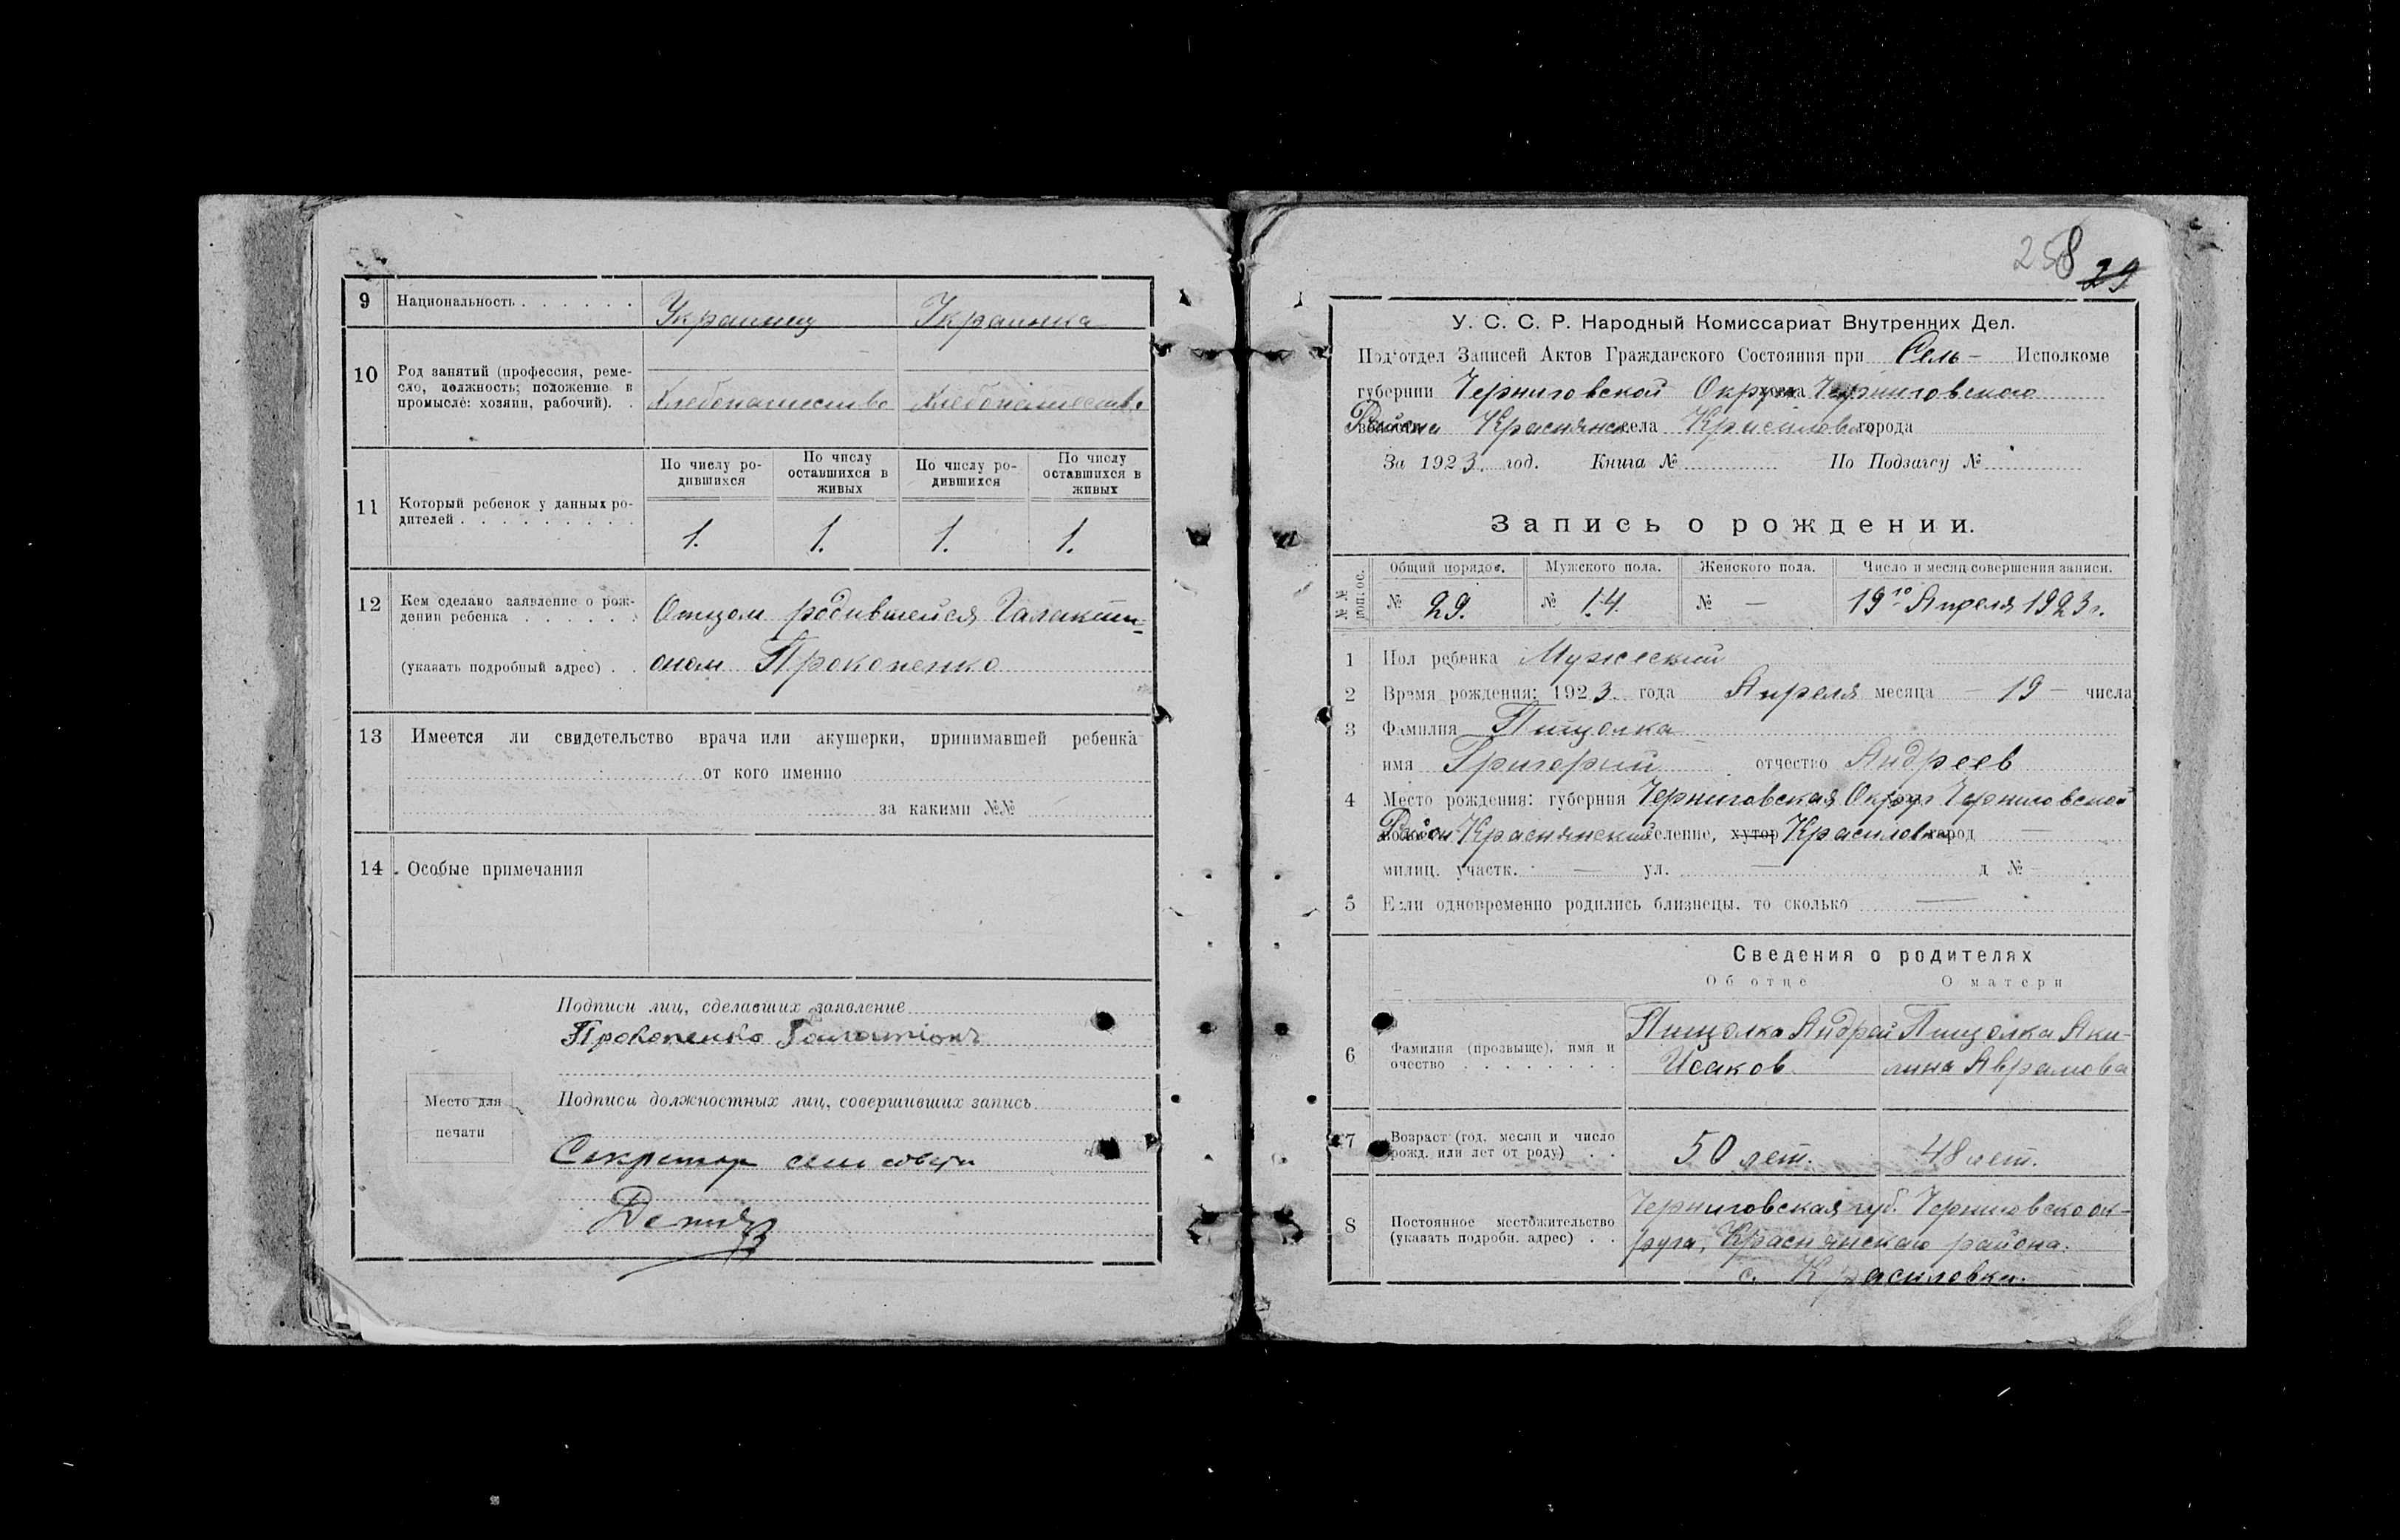 9 Национальность . . . . . . Украинец Украинка
10 Род занятий (профессия, реме-
сло, должность; положение в
промысле: хозяин, рабочий). . Хлебопашество Хлебопашество
По числу ро-
дившихся По числу
оставшихся в
живых По числу ро-
дившихся По числу
оставшихся в
живых
11 Который ребенок у данных ро-
дителей . . . . . . . . . 1. 1. 1. 1.
12 Кем сделано заявление о рож-
дении ребенка . . . . . . Отцом родившейся Галакти-
(указать подробный адрес) . . оном Прокопенко
13 Имеется ли свидетельство врача или акушерки, принимавшей ребенка
от кого именно
за какими №№
14 Особые примечания
Подписи лиц, сделавших заявление
Прокопенко Галактіонъ
Место для
печати
Подписи должностных лиц, совершивших запись
Секретар сельсовета
258 29
У. С. С. Р. Народный Комиссариат Внутренних Дел.
Под'отдел Записей Актов Гражданского Состояния при Сель- Исполкоме
губернии Черниговской Округа Черниговского
Района Краснянск села Красиловка города
За 1923 год. Книга № По Подзагсу №
Запись о рождении.
Общий порядов. Мужского пола. Женского пола. Число и месяц совершения записи.
№ 29. № 14. № — 19го Апреля 1923 г.
1 Пол ребенка Мужеский
2 Время рождения: 1923 года Апреля месяца — 19 — числа
3 Фамилия Пищолка
имя Григорий отчество Андреев
4 Место рождения: губерния Черниговская Округ Черниговской
Район Краснянский селение, хутор Красиловка город —
милиц. участк. — ул. — д №
5 Если одновременно родились близнецы, то сколько —
Сведения о родителях
Об отце О матери
6 Фамилия (прозвище), имя и
очество . . . . . . . . Пищолка Андрей Исаков Пищолка Аки-
лина Аврамова
7 Возраст (год, месяц и число
рожд. или лет от роду) . . 50 лет. 48 лет.
8 Постоянное местожительство
(указать подробн. адрес) . . Черниговская губ. Черниговско ок-
руга, Краснянского района.
с. Красиловки.